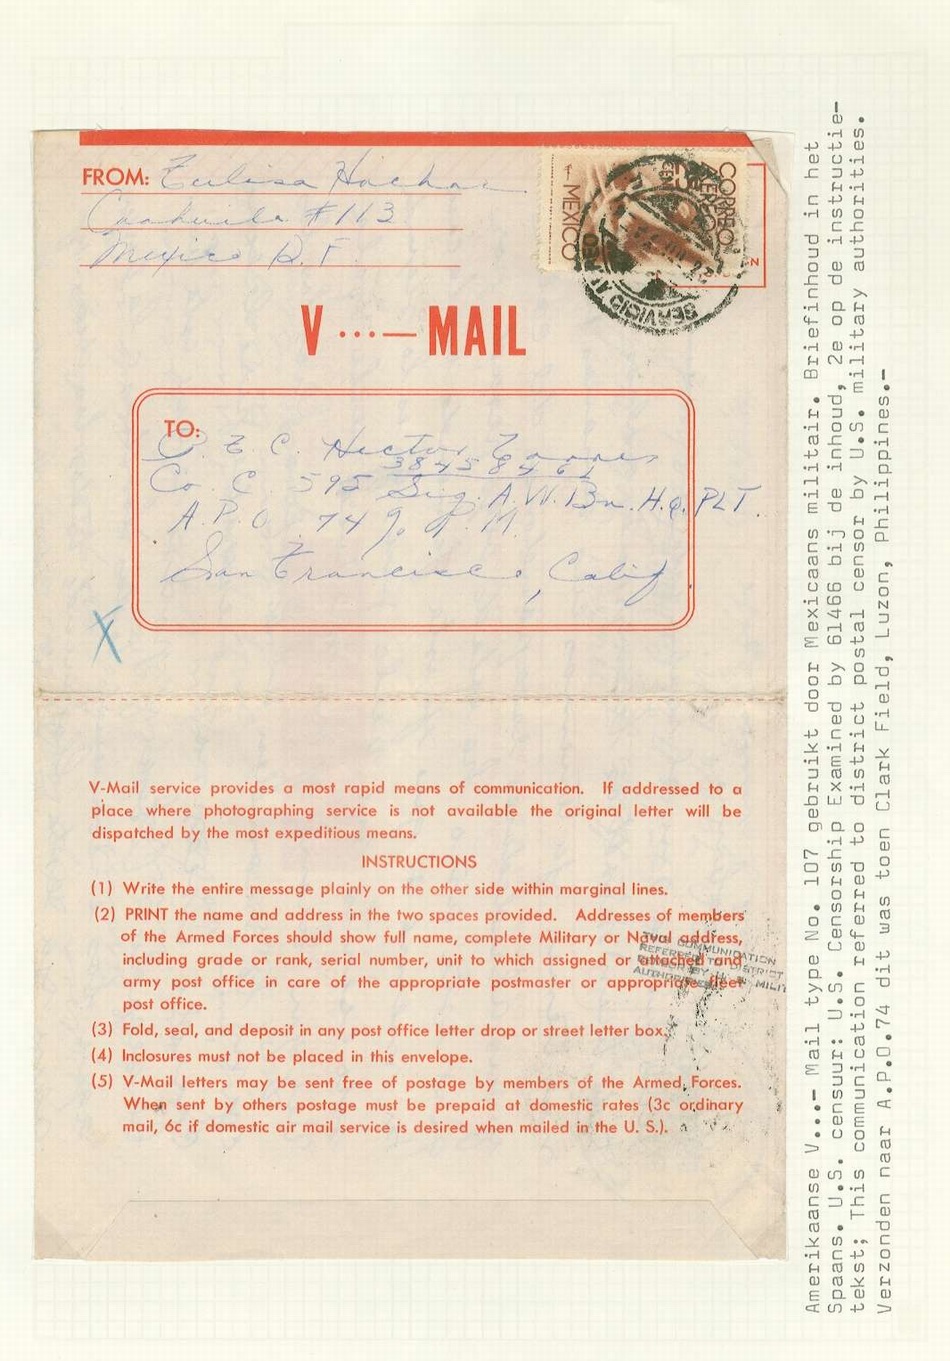 FROM: Eulisa
Coahuila #113
Mexico D.F.
CORREO
AEREO
MEXICO
SERVICIO
V ...— MAIL
TO:
P. F. C. Hector Torres
38458461
Co. C. 595 Sig. A.W. Bn. H.q. PLT.
A.P.O. 74 % P.M.
San Francisco, Calif
V-Mail service provides a most rapid means of communication. If addressed to a
place where photographing service is not available the original letter will be
dispatched by the most expeditious means.
INSTRUCTIONS
(1) Write the entire message plainly on the other side within marginal lines.
(2) PRINT the name and address in the two spaces provided. Addresses of members
of the Armed Forces should show full name, complete Military or Naval address,
including grade or rank, serial number, unit to which assigned or attached and
army post office in care of the appropriate postmaster or appropriate fleet
post office.
(3) Fold, seal, and deposit in any post office letter drop or street letter box.
(4) Inclosures must not be placed in this envelope.
(5) V-Mail letters may be sent free of postage by members of the Armed Forces.
When sent by others postage must be prepaid at domestic rates (3c ordinary
mail, 6c if domestic air mail service is desired when mailed in the U. S.).
THIS COMMUNICATION
REFERRED TO DISTRICT
CENSOR BY U. S. MILIT
AUTHORITIES
Amerikaanse V...- Mail type No. 107 gebruikt door Mexicaans militair. Briefinhoud in het
Spaans. U.S. censuur: U.S. Censorship Examined by 61466 bij de inhoud, 2e op de instructie-
tekst; This communication referred to district postal censor by U.S. military authorities.
Verzonden naar A.P.O.74 dit was toen Clark Field, Luzon, Philippines.-